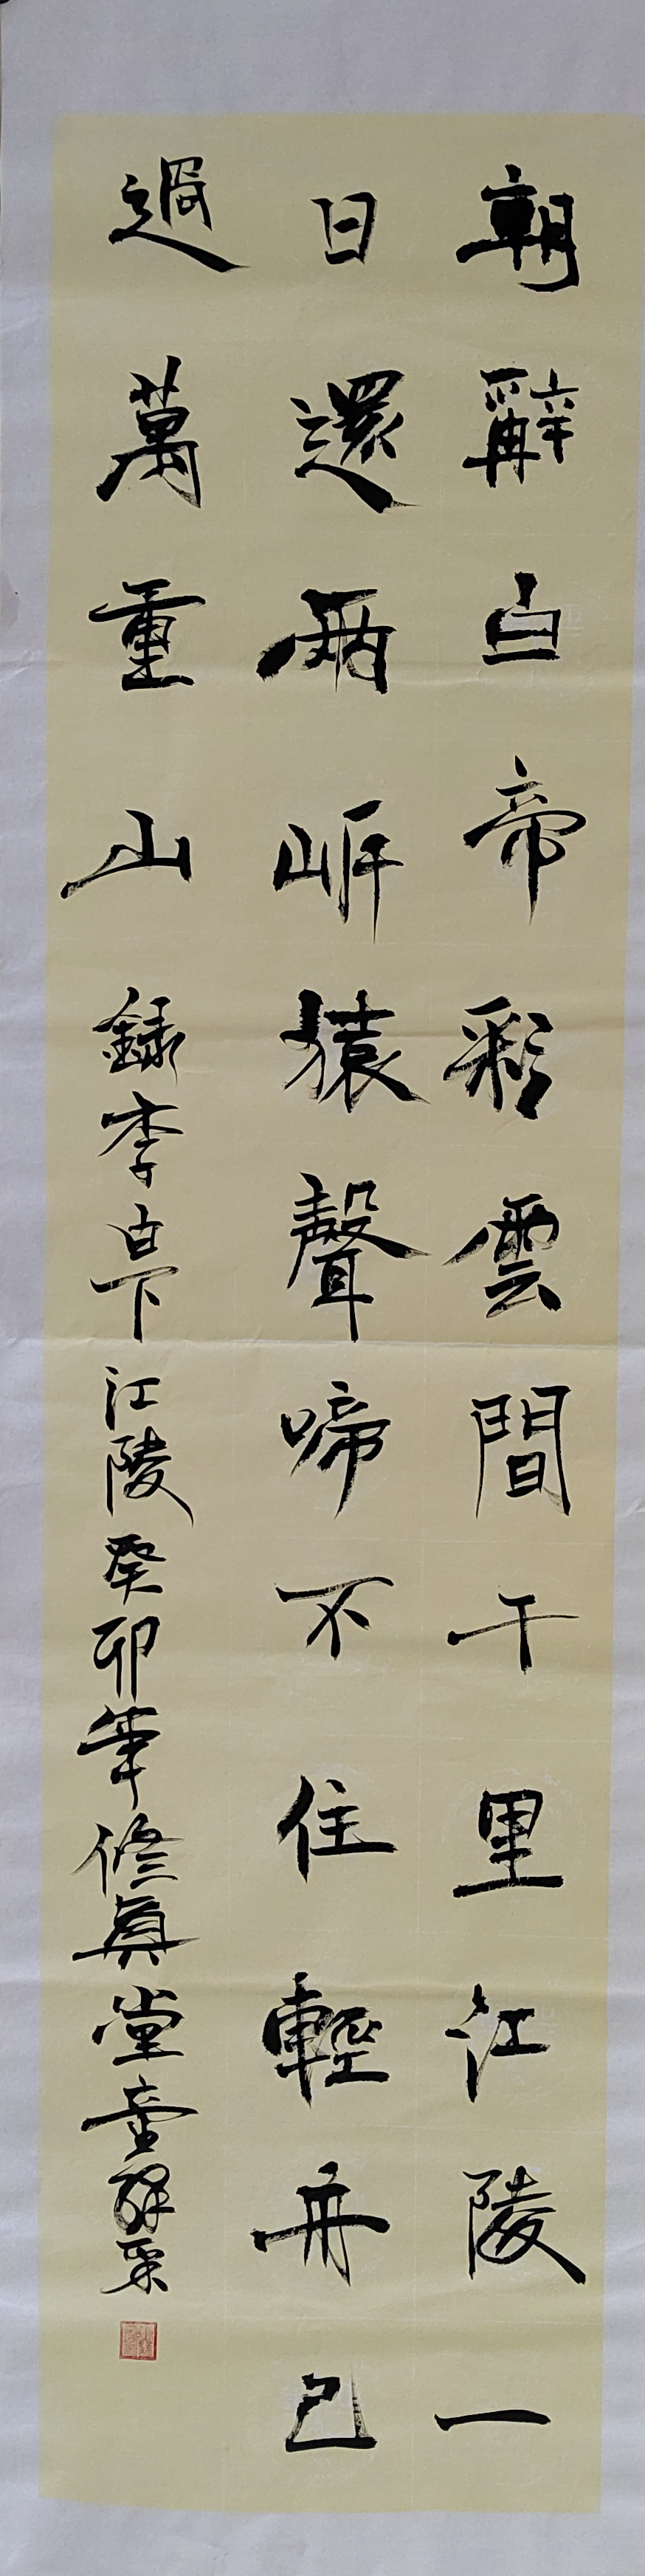 朝辭白帝彩雲間千里江陵一
日還兩岸猿聲啼不住輕舟已
過萬重山 錄李白下江陵癸卯年修真堂童